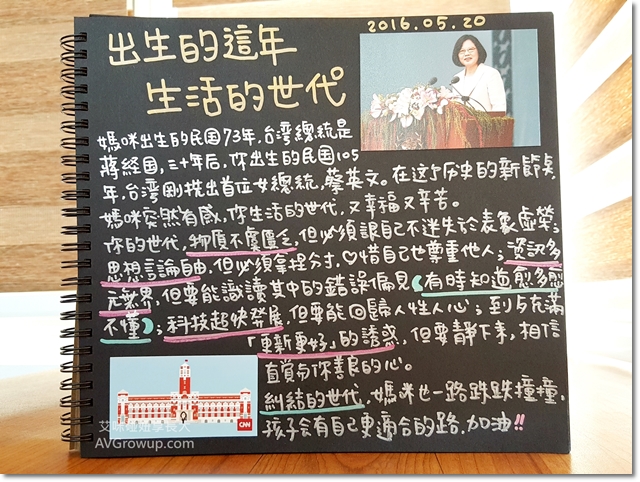 2016.05.20
出生的這年
生活的世代
媽咪出生的民国73年,台湾總統是
蔣経国,三十年后,你出生的民国105
年,台湾剛找出首位女總統,蔡英文。在这歷史的新節点
媽咪突然有感,你生活的世代,又幸福又辛苦。
你的世代,物質不虞匱乏,但必須跟自己不迷失於表象虛榮;
思想言論自由,但必須拿捏分寸,♡惜自己也尊重他人;資訊多
元無界,但要能識讀其中的錯誤偏見(有時知道愈多愈
不懂);科技起快発展,但要能回歸人性人心;到処充滿
「更新更好」的誘惑,但要靜下来,相信
直覚与你善良的心。
糾結的世代,媽咪也一路跌跌撞撞,
孩子会有自己更適合的路,加油!!
CNN
AVGrowup.com